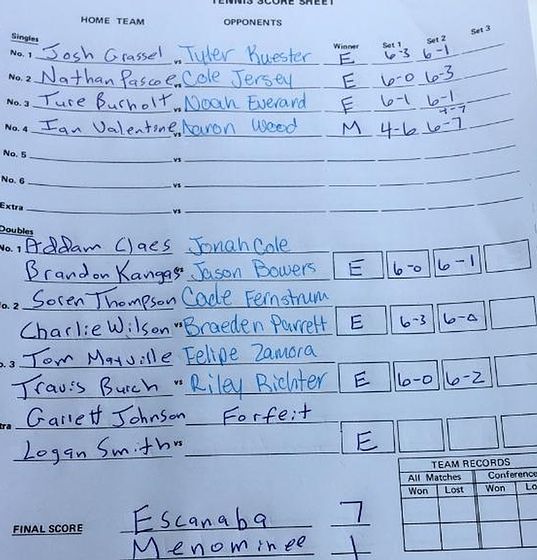 TENNIS SCORE SHEET
HOME TEAM OPPONENTS
Singles Winner Set 1 Set 2 Set 3
No. 1 Josh Grassel vs Tyler Kuester E 6-3 6-1
No. 2 Nathan Pascoe vs Cole Jersey E 6-0 6-3
No. 3 Ture Burholt vs Noah Everard E 6-1 6-1
No. 4 Ian Valentine vs Aaron Weed M 4-6 6-7 4-7
No. 5 vs
No. 6 vs
Extra vs
Doubles
No. 1 Addam Claes Jonah Cole
Brandon Kangas vs Jason Bowers E 6-0 6-1
o. 2 Soren Thompson Cade Fernstrum
Charlie Wilson vs Braeden Parrett E 6-3 6-0
. 3 Tom Felipe Zamora
Travis Burch vs Riley Richter E 6-0 6-2
tra Garrett Johnson Forfeit
Logan Smith vs E
TEAM RECORDS
All Matches Conference
Won Lost Won Lo
FINAL SCORE Escanaba 7
Menominee 1